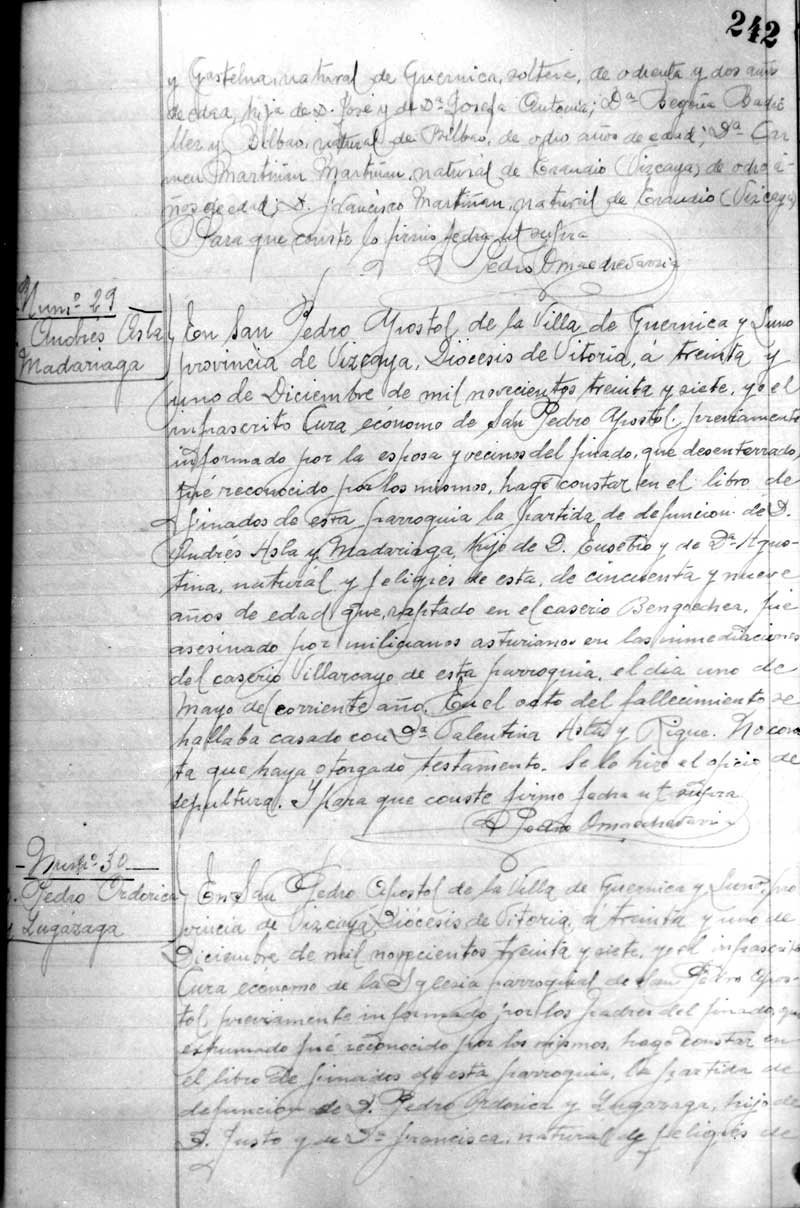 242
y Gastelua, natural de Guernica, soltera, de ochenta y dos años
de edad, hija de D. José y de Dª Josefa Antonia; Dª Begoña Badio
y Bilbao, natural de Bilbao, de ocho años de edad; Dª Car
men Martiñan Martiñan, natural de Erandio (Vizcaya) de ocho a-
ños de edad; D. Francisco Martiñan, natural de Erandio (Vizcaya)
Para que conste lo firmo fecha ut supra
Pedro Omaechevarria
Num.º 29
Andrés Asla y
Madariaga
En San Pedro Apostol de la Villa de Guernica y Luno
provincia de Vizcaya, Diócesis de Vitoria, á treinta y
uno de Diciembre de mil novecientos treinta y siete, yo el
infrascrito Cura ecónomo de San Pedro Apostol, previamente
informado por la esposa y vecinos del finado, que desenterrado,
fué reconocido por los mismos, hago constar en el libro de
finados de esta parroquia la partida de defuncion de D.
Andrés Asla y Madariaga, hijo de D. Eusebio y de Dª Agus-
tina, natural y feligrés de esta, de cincuenta y nueve
años de edad que, raptado en el caserio Bengoechea, fué
asesinado por milicianos asturianos en las inmediaciones
del caserio Villarcayo de esta parroquia, el dia uno de
Mayo del corriente año. En el acto del fallecimiento se
hallaba casado con Dª Valentina y. No cons
ta que haya otorgado testamento. Se le hizo el oficio de
sepultura. Y para que conste firmo fecha ut supra
Pedro Omaechevarria
Num.º 30
D. Pedro Ordorica
y Lugázaga
En San Pedro Apostol de la Villa de Guernica y Luno, pro
vincia de Vizcaya, Diócesis de Vitoria, á treinta y uno de
Diciembre de mil novecientos treinta y siete, yo el infrascrito
Cura economo de la Iglesia parroquial de San Pedro Apos-
tol previamente informado por los padres del finado, que
exhumado fué reconocido por los mismos, hago constar en
el libro de finados de esta parroquia, la partida de
defuncion de D. Pedro Ordorica y Lugazaga, hijo de
D. Justo y de Dª Francisca, natural y feligrés de